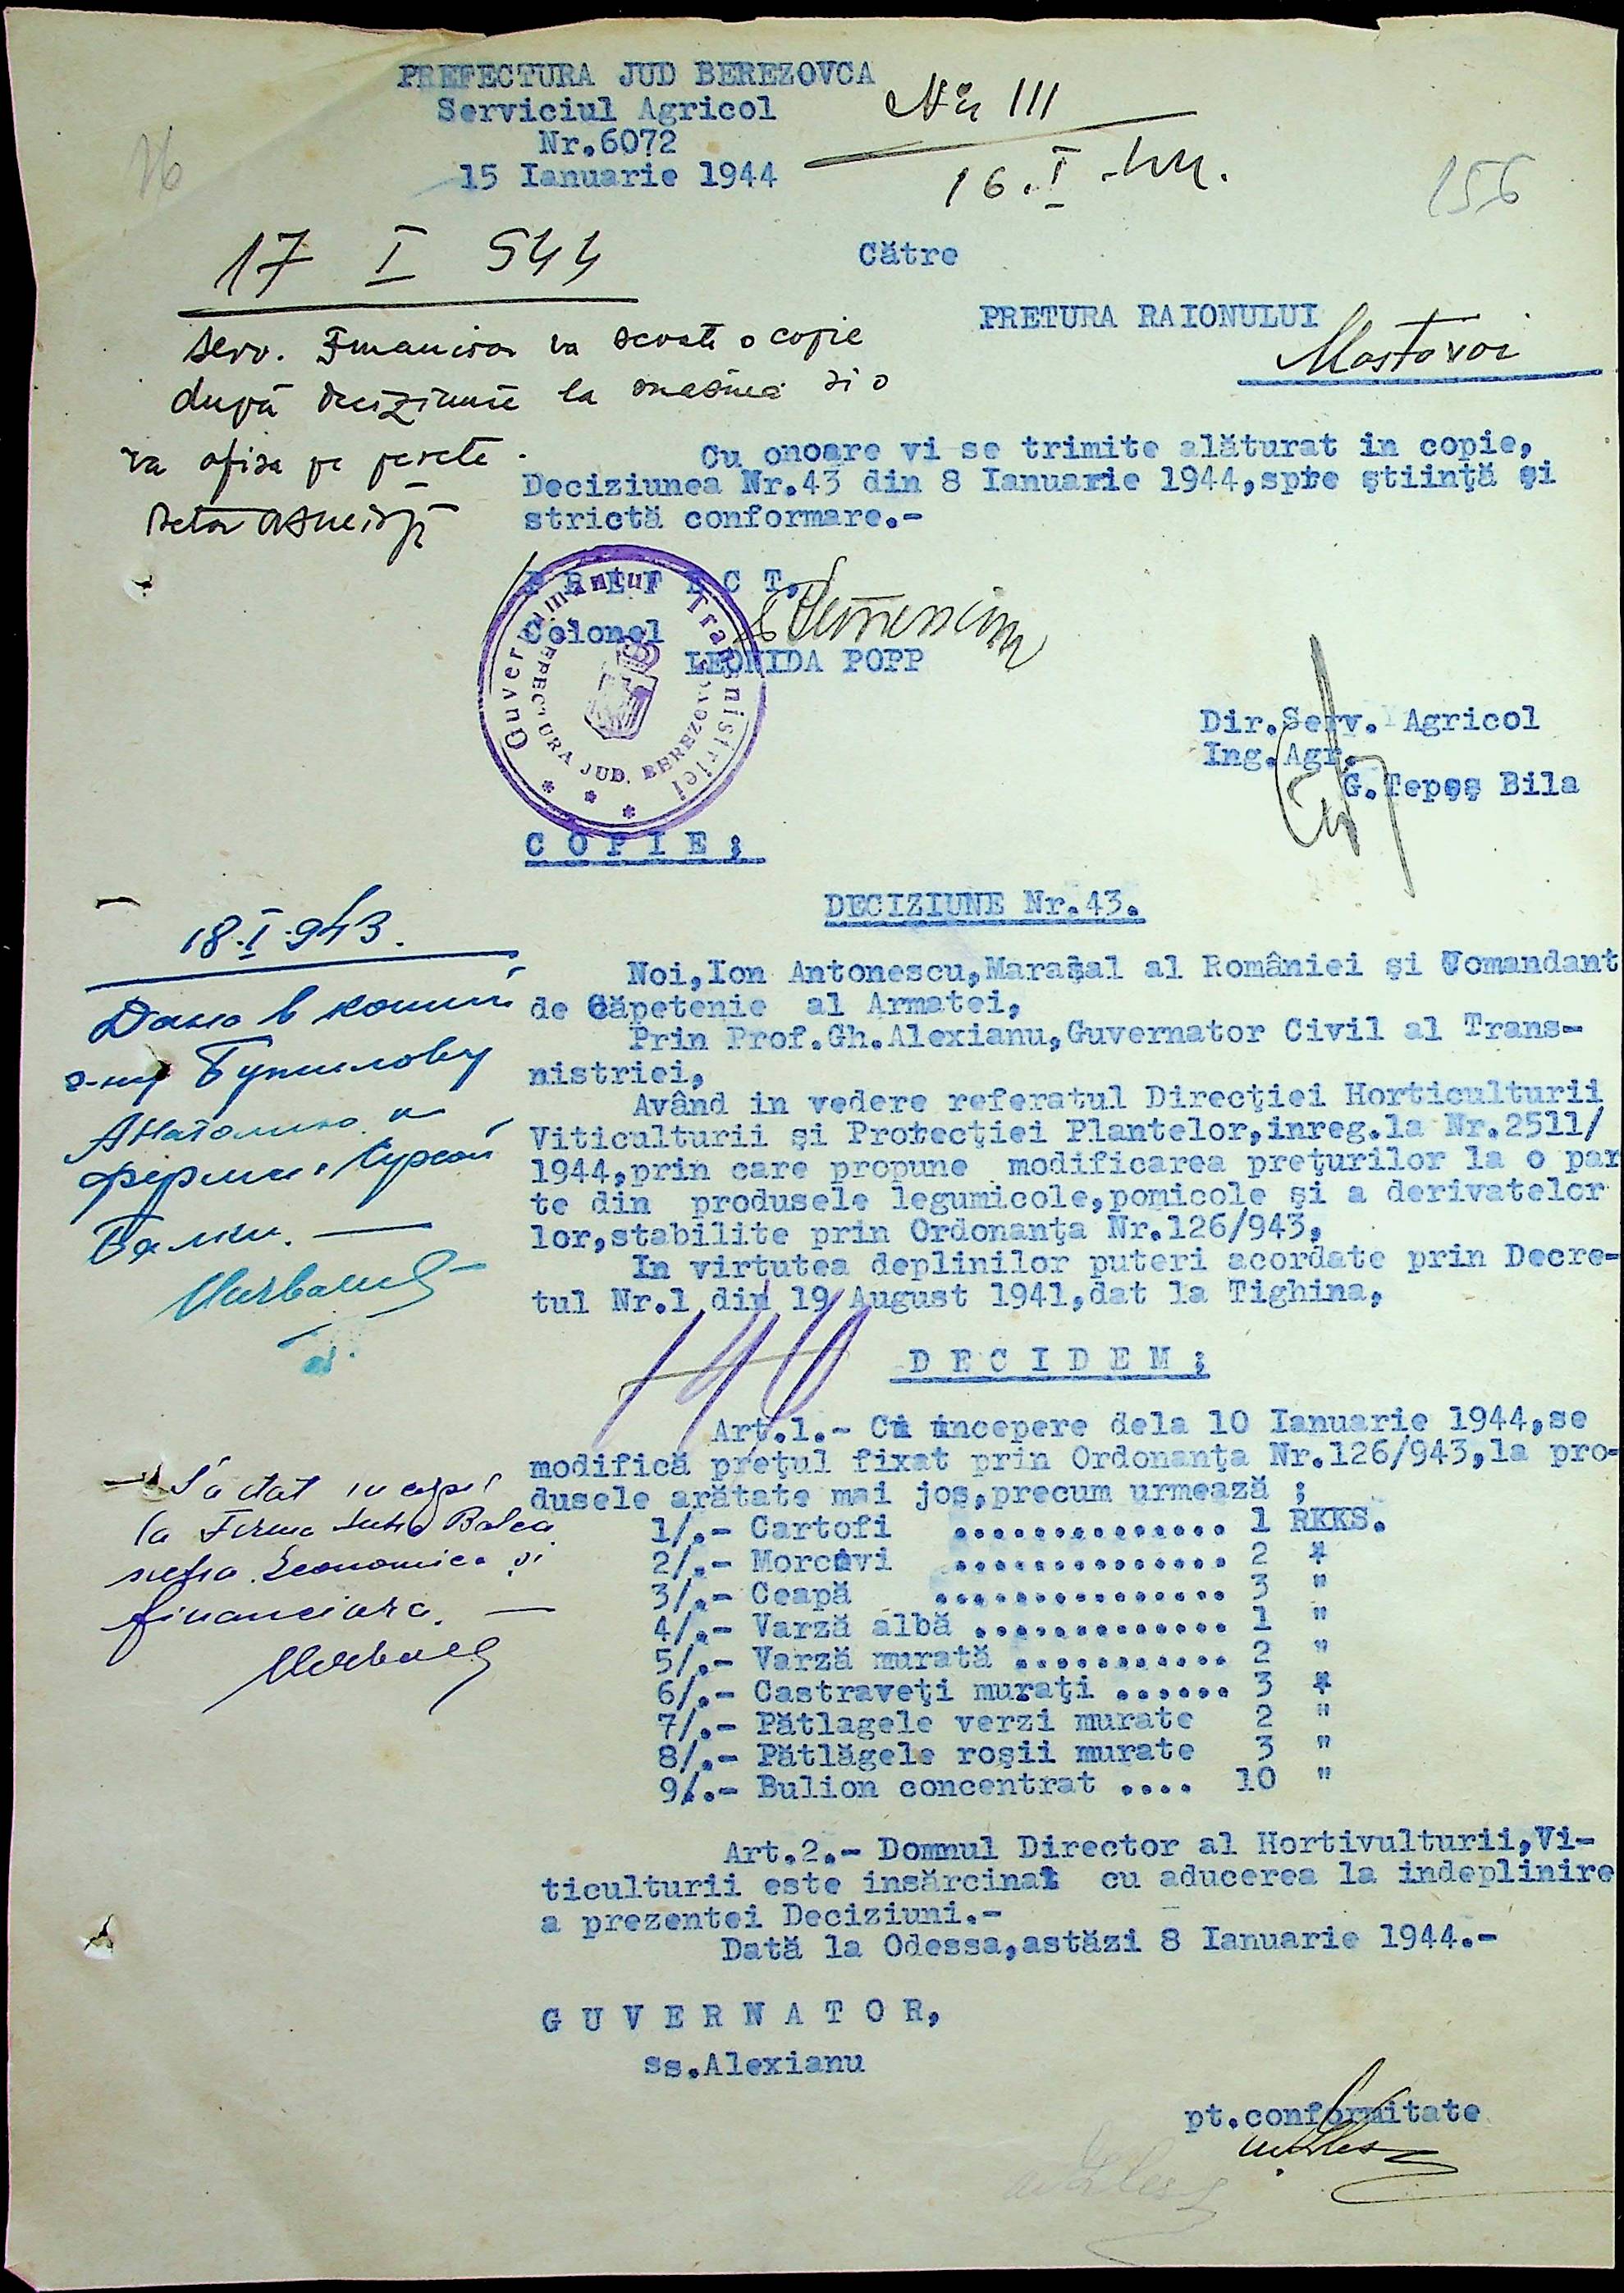 PREFECTURA JUD BEREZOVCA
Serviciul Agricol
Nr.6072
15 Ianuarie 1944
No 111
16.I.44.
156
17 I 944
Către
PRETURA RAIONULUI
Mostovoi
Serv. Financiar va scoate o copie
după deciziune la mașină și o
va afișa pe perete.
Cu onoare vi se trimite alăturat in copie,
Deciziunea Nr.43 din 8 Ianuarie 1944,spre ştiinţă şi
strictă conformare.-
P R E F E C T,
Colonel
LEONIDA POPP
Guvernamantul Transnistriei
PREFECTURA JUD. BEREZOVCA
Dir.Serv. Agricol
Ing.Agr.
G.Tepeş Bila
C O P I E ;
DECIZIUNE Nr.43.
18.I.943.
Дано в копии
г-ну
Анатолию и
фермы Сухой
Балки.
Noi,Ion Antonescu,Maraşal al României şi Comandant
de Căpetenie al Armatei,
Prin Prof.Gh.Alexianu,Guvernator Civil al Trans-
nistriei,
Având in vedere referatul Direcţiei Horticulturii
Viticulturii şi Protecţiei Plantelor,inreg.la Nr.2511/
1944,prin care propune modificarea preţurilor la o par
te din produsele legumicole,pomicole şi a derivatelor
lor,stabilite prin Ordonanţa Nr.126/943,
In virtutea deplinilor puteri acordate prin Decre-
tul Nr.1 din 19 August 1941,dat la Tighina,
D E C I D E M ;
Art.1.- Cu incepere dela 10 Ianuarie 1944,se
modifică preţul fixat prin Ordonanţa Nr.126/943,la pro-
dusele arătate mai jos,precum urmează ;
1/.- Cartofi .............. 1 RKKS.
2/.- Morcovi .............. 2 "
3/.- Ceapă ............... 3 "
4/.- Varză albă ............. 1 "
5/.- Varză murată ........... 2 "
6/.- Castraveţi muraţi ...... 3 "
7/.- Pătlagele verzi murate 2 "
8/.- Pătlăgele roşii murate 3 "
9/.- Bulion concentrat .... 10 "
S'a dat in copie
la Ferma Suha Balca
secția Economica și
financiara.
Art.2.- Domnul Director al Hortivulturii,Vi-
ticulturii este insărcinat cu aducerea la indeplinire
a prezentei Deciziuni.-
Dată la Odessa,astăzi 8 Ianuarie 1944.-
G U V E R N A T O R,
ss.Alexianu
pt.conformitate